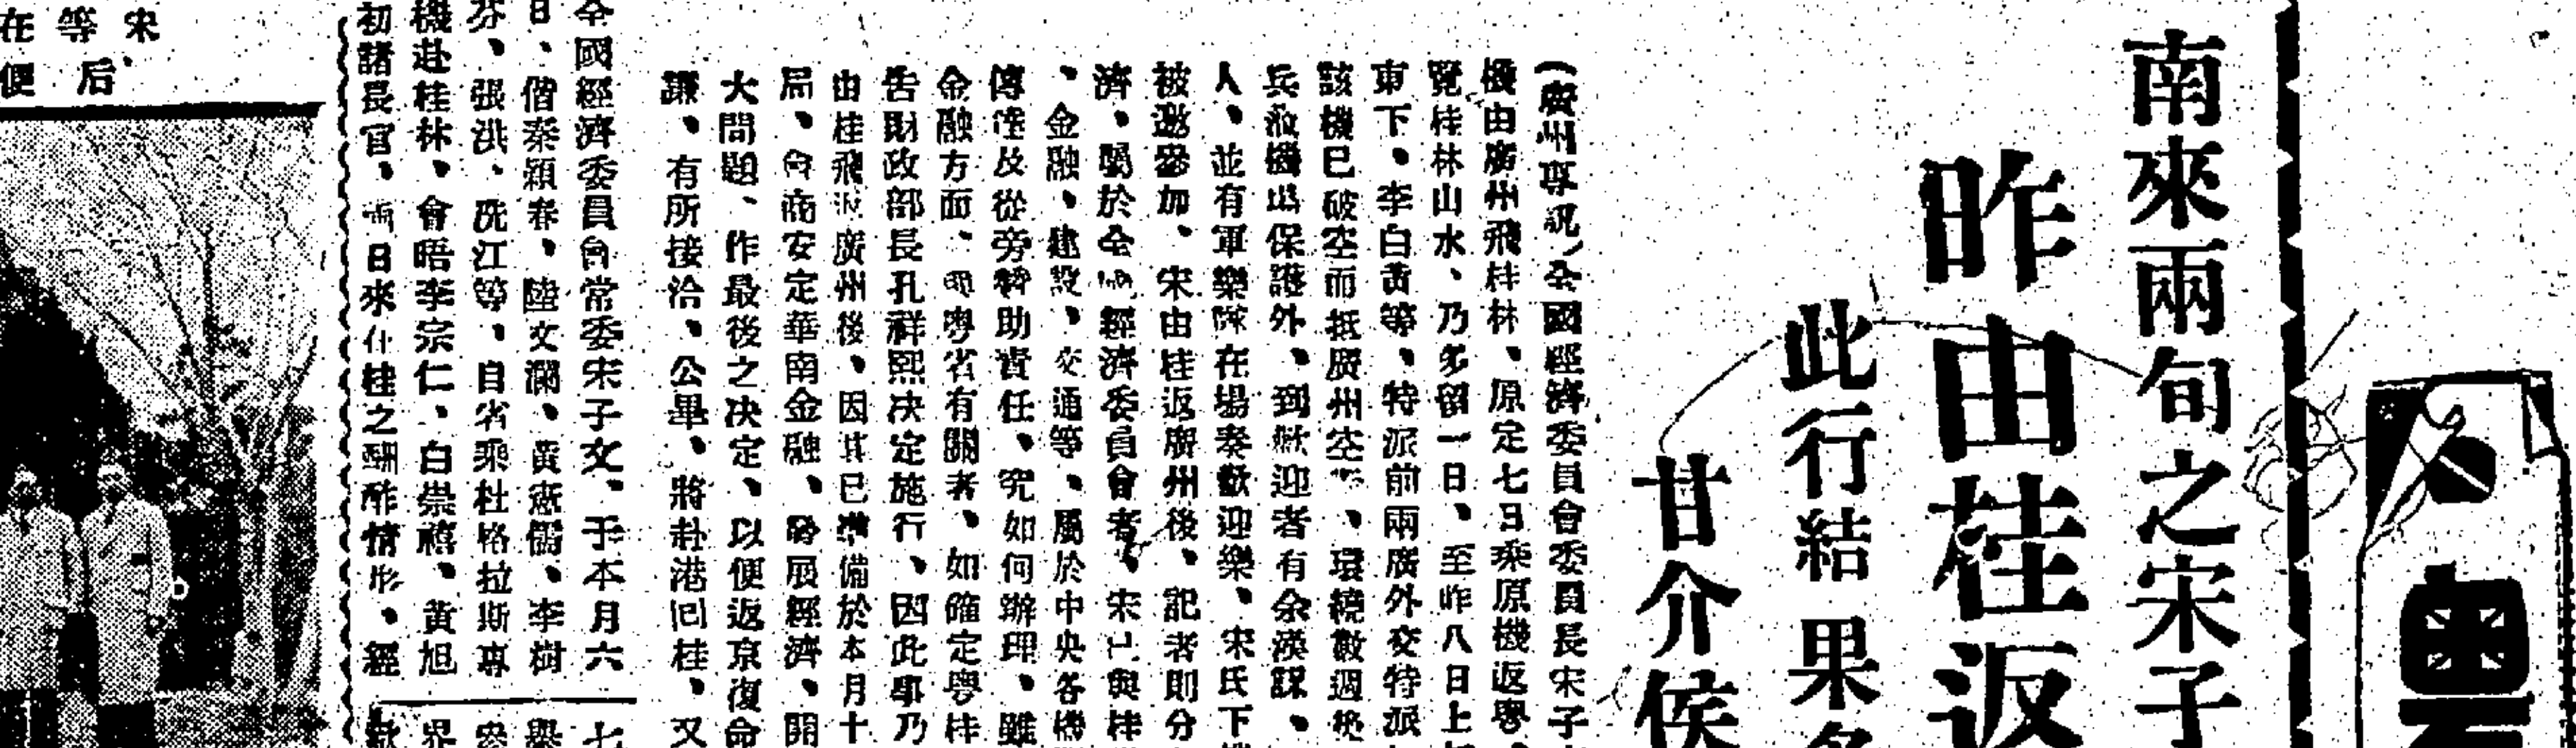 南來兩旬之宋子
昨由桂返
此行結果
甘介侯
(廣州專訊)全國經濟委員會委員長宋子
機由廣州飛桂林、原定七日乘原機返粵、
覽桂林山水、乃多留一日、至昨八日上
東下、李白黃等、特派前兩廣外交特派
該機已破空而抵廣州空 、環繞數週
兵 機出保護外、到歡迎者有余漢謀、
人、並有軍樂隊在場奏歡迎樂、宋氏下機
被邀參加、宋由桂返廣州後、記者則分
濟、屬於全 經濟委員會者、宋已與桂
、金融、建設、交通等、屬於中央各機
傳達及從旁贊助責任、究如何辦理、雖
金融方面、 粵省有關者、如確定粵桂
告財政部長孔祥熙决定施行、因此事乃
由桂飛返廣州後、因其已準備於本月十
局、會商安定華南金融、發展經濟、開
大問題、作最後之决定、以便返京復命
謙、有所接洽、公畢、將赴港囘桂、又
全國經濟委員會常委宋子文、于本月六
日、偕秦穎春、陸文瀾、黃憲儒、李樹
芬、張洪、冼江等、自省乘杜格拉斯專
機赴桂林、會晤李宗仁、白崇禧、黃旭
初諸長官、兩日來在桂之酬酢情形、經
七
舉
界
歡
宋等在
后便
粵